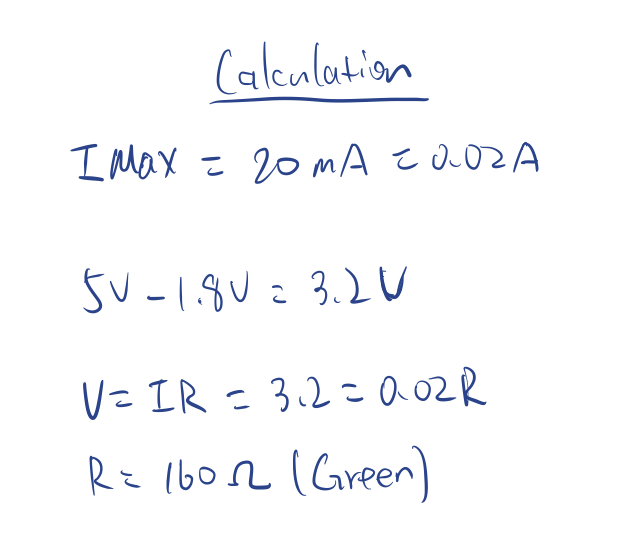 Calculation
I Max = 20 mA = 0.02A
5V - 1.8V = 3.2V
V = IR = 3.2 = 0.02R
R = 160 Ω (Green)